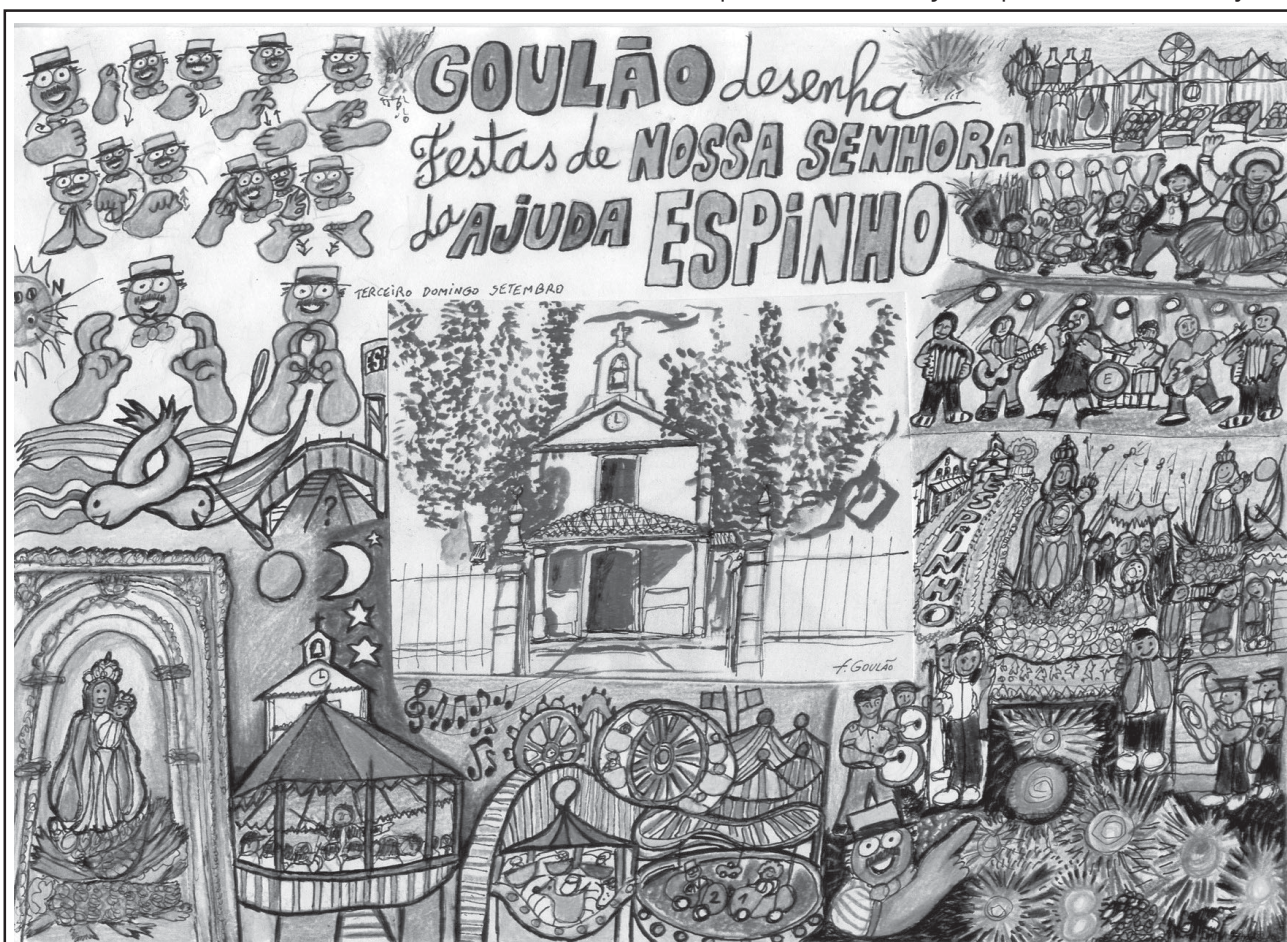 GOULÃO desenha
Festas de NOSSA SENHORA
da AJUDA ESPINHO
TERCEIRO DOMINGO SETEMBRO
ESPINHO
?
f. GOULÃO
E
2 1